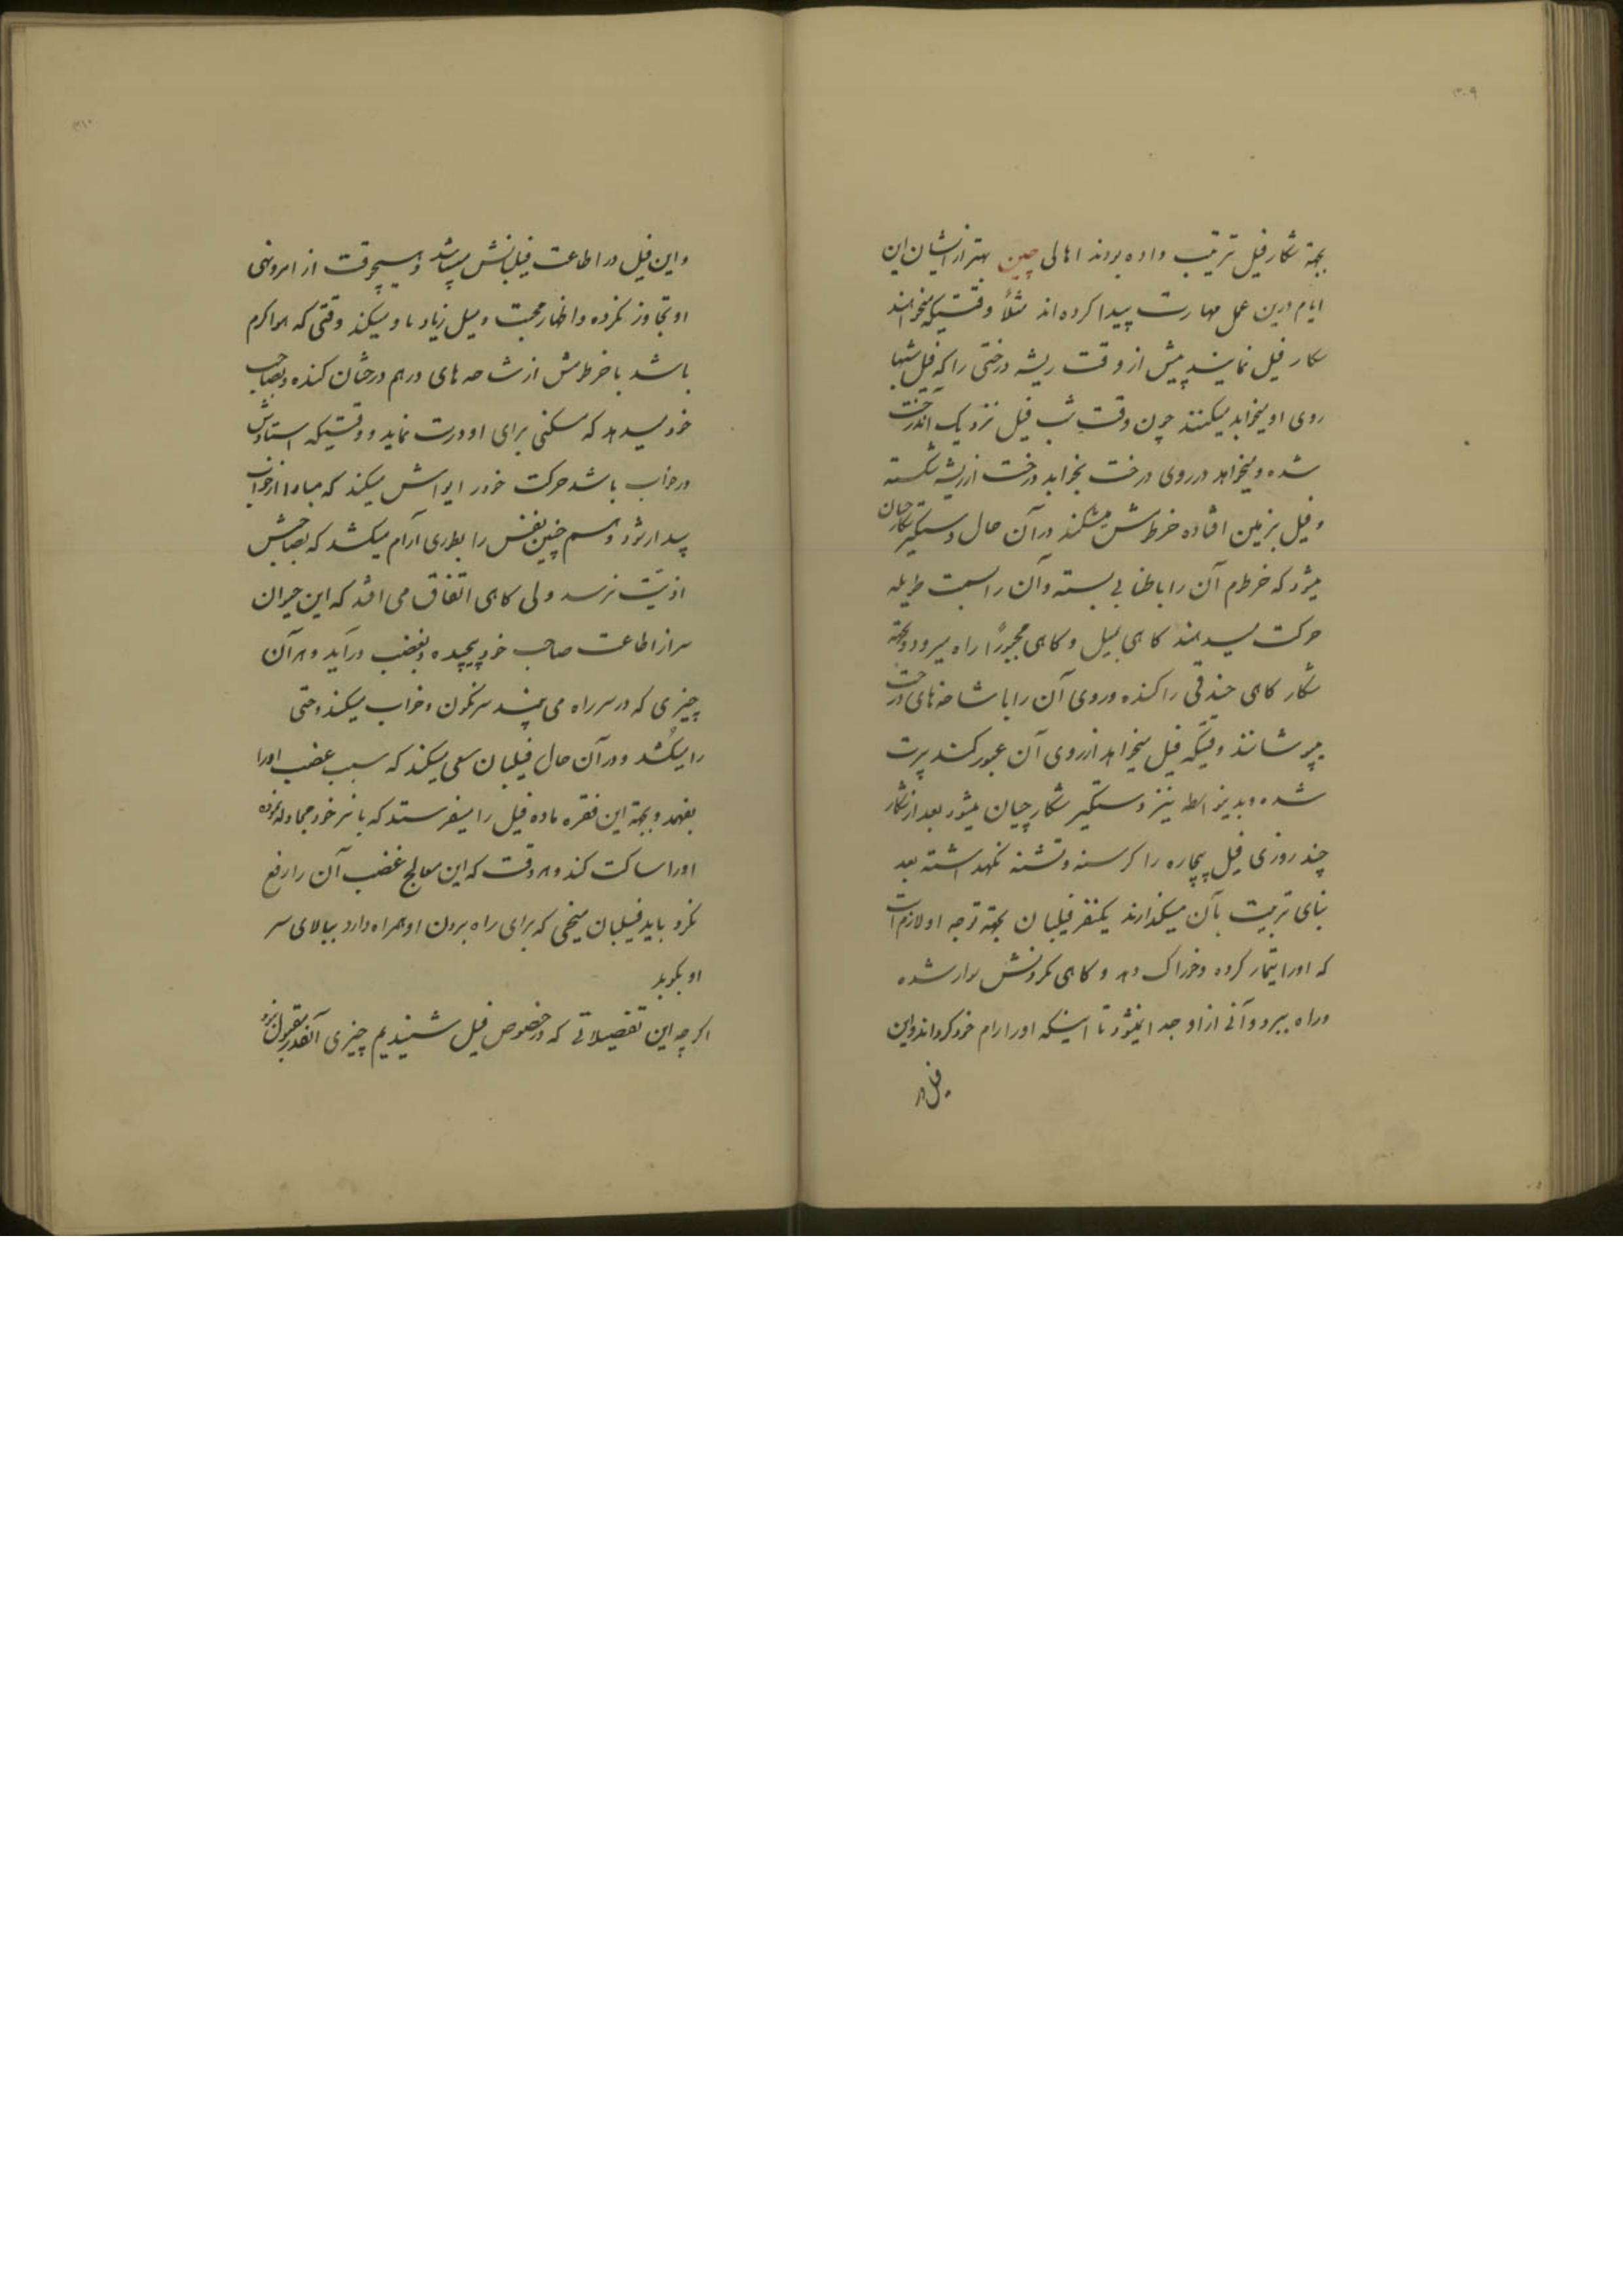 ۳۰۹
بجهة شکار فیل ترتیب داده بودند اهالی چین بهتر از ایشان این
ایام درین عمل مهارت پیدا کرده‌اند مثلاً وقتیکه میخواهند
شکار فیل نمایند پیش از وقت ریشه درختی را که فیل شبها
روی او میخوابد میکنند چون وقت شب فیل نزدیک آندرخت
شده و میخواهد در روی درخت بخوابد درخت از ریشه شکسته
و فیل بزمین افتاده خرطومش میشکند در آن حال دستگیر شکارچیان
میشود که خرطوم آن را با طنابی بسته و آن را بسمت طویله
حرکت میدهند کاهی بمیل و کاهی مجبوراً راه میرود و بجهة
شکار کاهی خندقی را کنده و روی آن را با شاخه‌های درخت
میپوشانند وقتیکه فیل میخواهد از روی آن عبور کند پرت
شده و بدینواسطه نیز دستگیر شکارچیان میشود بعد از شکار
چند روزی فیل بیچاره را کرسنه و تشنه نکهداشته بعد
بنای تربیت بآن میکذارند یکنفر فیلبان بجهة توجه او لازم است
که او را تیمار کرده و خوراک دهد و کاهی بکردنش سوار شده
و راه ببرد و آنی از او جدا نمیشود تا اینکه او را رام خود کرداند و این
فیل در
۳۱۰
و این فیل در اطاعت فیلبانش میباشد و هیچوقت از امر و نهی
او تجاوز نکرده و اظهار محبت و میل زیاد باو میکند وقتی که هوا کرم
باشد با خرطومش از شاخه‌های درهم درختان کنده و بصاحب
خود میدهد که مسکنی برای او درست نماید و وقتیکه استادش
در خواب باشد حرکت خود را یواش میکند که مبادا از خواب
بیدار شود و هم چنین نفس را بطوری آرام میکشد که بصاحبش
اذیّت نرسد ولی کاهی اتفاق می افتد که این حیوان
سر از اطاعت صاحب خود پیچیده و بغضب درآید و هر آن
چیزی که در سر راه می بیند سرنکون و خراب میکند و حتی
را میکُشد و در آن حال فیلبان سعی میکند که سبب غضب او را
بفهمد و بجهة این فقره ماده فیل را میفرستد که با نر خود مجادله نموده
او را ساکت کند و هر وقت که این معالج غضب آن را رفع
نکرد باید فیلبان میخی که برای راه بردن او همراه دارد ببالای سر
او بکوبد
اکرچه این تفصیلاتی که در خصوص فیل شنیدیم چیزی آنقدر مقبول نبود